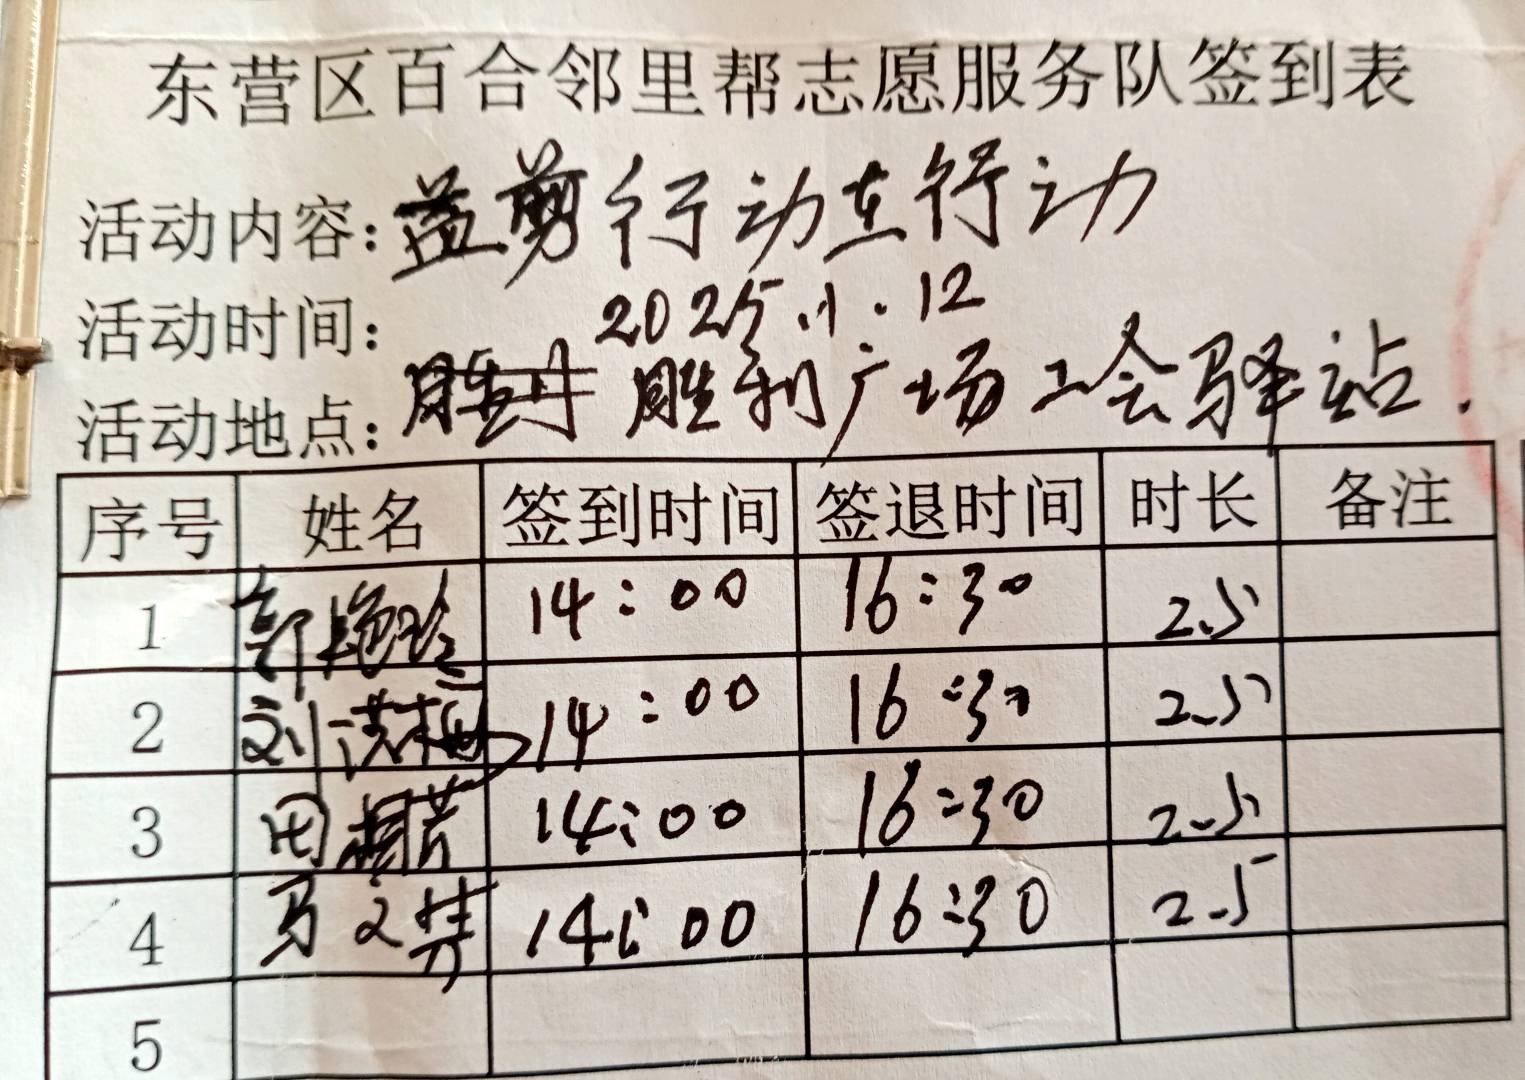 东营区百合邻里帮志愿服务队签到表
活动内容：益剪行动在行动
活动时间：2025.11.12
活动地点：胜利广场工会驿站.
序号 姓名 签到时间 签退时间 时长 备注
1 郭艳玲 14:00 16:30 2.5
2 刘洪梅 14:00 16:30 2.5
3 田 14:00 16:30 2.5
4 马文 14:00 16:30 2.5
5